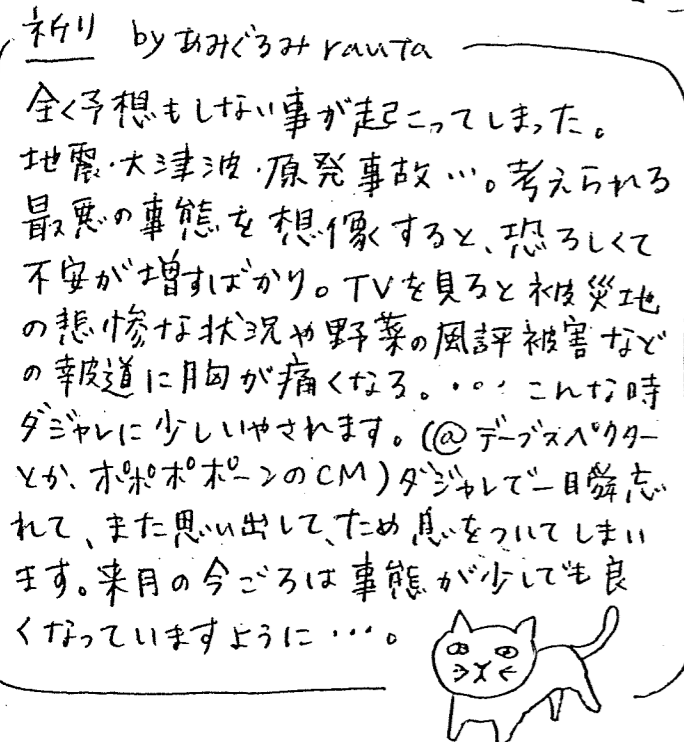 祈り by あみぐるみ rauta
全く予想もしない事が起こってしまった。
地震・大津波・原発事故…。考えられる
最悪の事態を想像すると、恐ろしくて
不安が増すばかり。TVを見ると被災地
の悲惨な状況や野菜の風評被害など
の報道に胸が痛くなる。・・・こんな時
ダジャレに少しいやされます。(@デーブスペクター
とか、ポポポポーンのCM)ダジャレで一瞬忘
れて、また思い出して、ため息をついてしまい
ます。来月の今ごろは事態が少しでも良
くなっていますように…。